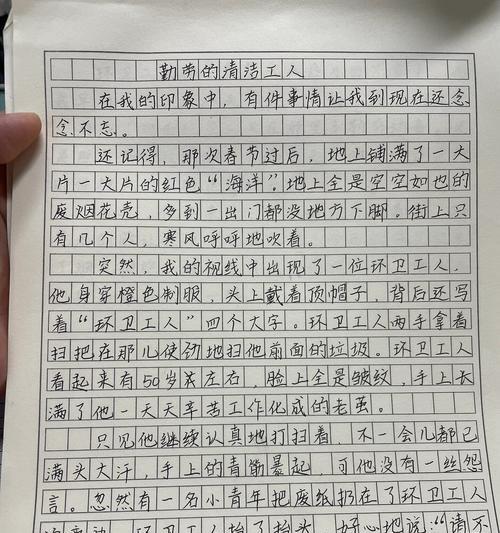 勤劳的清洁工人
在我的印象中，有件事情让我到现在还念
念不忘。
还记得，那次春节过后，地上铺满了一大
片一大片的红色“海洋”。地上全是空空如也的
废烟花壳，多到一出门都没地方下脚。街上只
有几个人，寒风呼呼地吹着。
突然，我的视线中出现了一位环卫工人，
他身穿橙色制服，头上戴着顶帽子，背后还写
着“环卫工人”四个大字。环卫工人两手拿着
扫把在那儿使劲地扫他前面的垃圾。环卫工人
看起来有50岁左右，脸上全是皱纹，手上长
满了他一天天辛苦工作化成的老茧。
只见他继续认真地打扫着，不一会儿都已
满头大汗，手上的青筋暴起，可他没有一丝怨
言。忽然有一名小青年把废纸扔在了环卫工人
环卫工人抬了抬头，好心地说：“请不